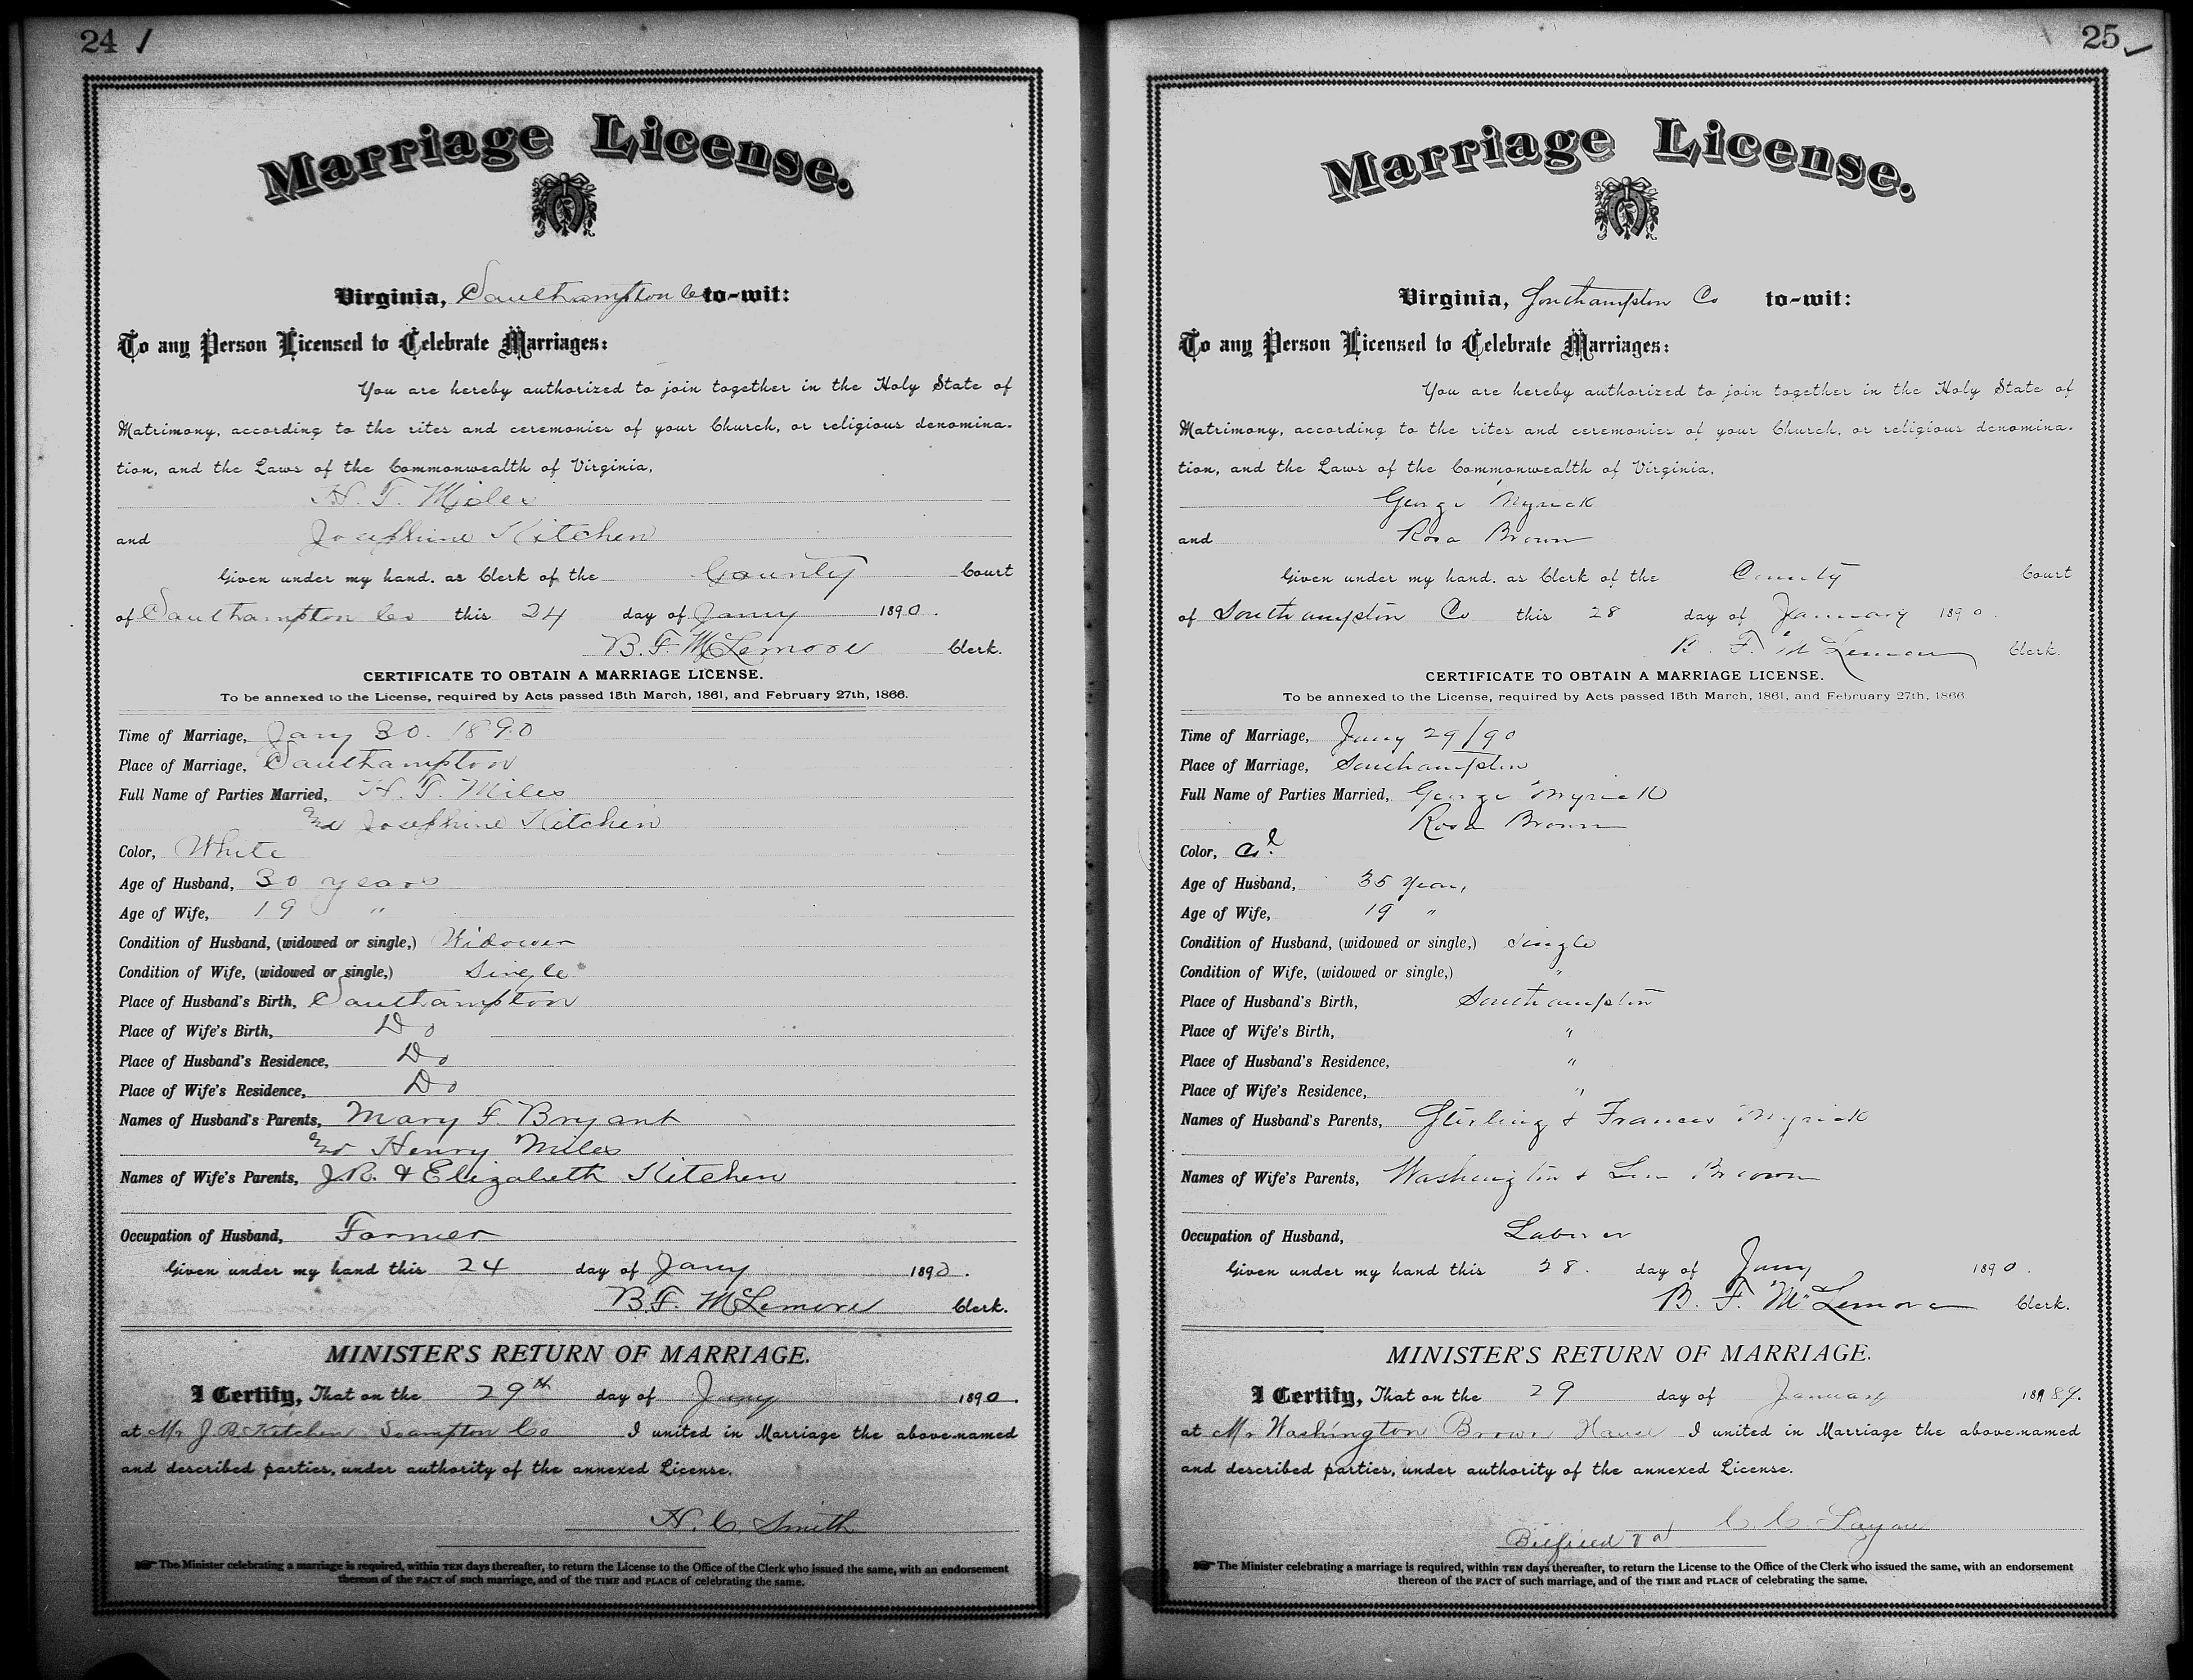 24
Marriage License.
Virginia, Southampton Co to-wit:
To any Person Licensed to Celebrate Marriages:
You are hereby authorized to join together in the Holy State of
Matrimony, according to the rites and ceremonies of your Church, or religious denomina-
tion, and the Laws of the Commonwealth of Virginia,
H. T. Miles
and Josephine Kitchen
Given under my hand. as Clerk of the County Court
of Southampton Co this 24 day of Jany 1890.
B. F. McLemore Clerk.
CERTIFICATE TO OBTAIN A MARRIAGE LICENSE.
To be annexed to the License, required by Acts passed 15th March, 1861, and February 27th, 1866.
Time of Marriage, Jany 30. 1890
Place of Marriage, Southampton
Full Name of Parties Married, H. T. Miles
And Josephine Kitchen
Color, White
Age of Husband, 30 years
Age of Wife, 19 "
Condition of Husband, (widowed or single,) Widower
Condition of Wife, (widowed or single,) Single
Place of Husband's Birth, Southampton
Place of Wife's Birth, Do
Place of Husband's Residence, Do
Place of Wife's Residence, Do
Names of Husband's Parents, Mary F. Bryant
And Henry Miles
Names of Wife's Parents, J. R. & Elizabeth Kitchen
Occupation of Husband, Farmer
Given under my hand this 24 day of Jany 1890.
B. F. McLemore Clerk.
MINISTER'S RETURN OF MARRIAGE.
I Certify, That on the 29th day of Jany 1890.
at Mr J. R. Kitchen Co I united in Marriage the above-named
and described parties, under authority of the annexed License.
H. C. Smith
The Minister celebrating a marriage is required, within TEN days thereafter, to return the License to the Office of the Clerk who issued the same, with an endorsement
thereon of the FACT of such marriage, and of the TIME and PLACE of celebrating the same.
25
Marriage License.
Virginia, Southampton Co to-wit:
To any Person Licensed to Celebrate Marriages:
You are hereby authorized to join together in the Holy State of
Matrimony, according to the rites and ceremonies of your Church, or religious denomina-
tion, and the Laws of the Commonwealth of Virginia,
George Myrick
and Rosa Brown
Given under my hand. as Clerk of the County Court
of Southampton Co this 28 day of January 1890.
B. F. McLemore Clerk.
CERTIFICATE TO OBTAIN A MARRIAGE LICENSE.
To be annexed to the License, required by Acts passed 15th March, 1861, and February 27th, 1866
Time of Marriage, Jany 29/90
Place of Marriage, Southampton
Full Name of Parties Married, George Myrick
Rosa Brown
Color, Col
Age of Husband, 35 Years
Age of Wife, 19 "
Condition of Husband, (widowed or single,) Single
Condition of Wife, (widowed or single,) "
Place of Husband's Birth, Southampton
Place of Wife's Birth, "
Place of Husband's Residence, "
Place of Wife's Residence, "
Names of Husband's Parents, Sterling & Frances Myrick
Names of Wife's Parents, Washington & Brown
Occupation of Husband, Laborer
Given under my hand this 28. day of Jany 1890.
B. F. McLemore Clerk.
MINISTER'S RETURN OF MARRIAGE.
I Certify, That on the 29 day of January 1889.
at Mr Washington Brown I united in Marriage the above-named
and described parties, under authority of the annexed License.
C. C.
The Minister celebrating a marriage is required, within TEN days thereafter, to return the License to the Office of the Clerk who issued the same, with an endorsement
thereon of the FACT of such marriage, and of the TIME and PLACE of celebrating the same.